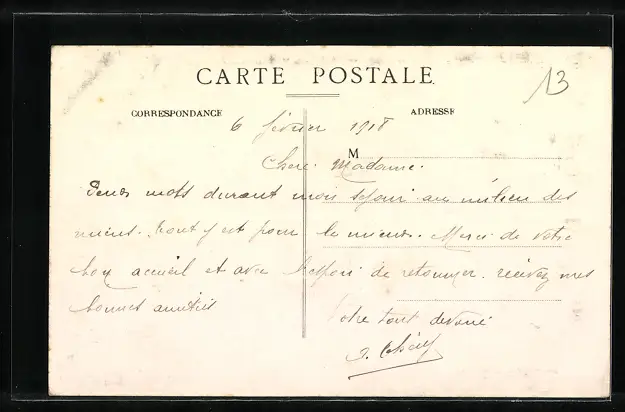 CARTE POSTALE
13
CORRESPONDANCE
ADRESSE
6 février 1918
M
Chère Madame.
Deux mots durant mon séjour au milieu des
miens. tout y est pour le mieux. Merci de votre
bon accueil et avec l'espoir de retourner. recevez mes
bonnes amitiés
Votre tout dévoué